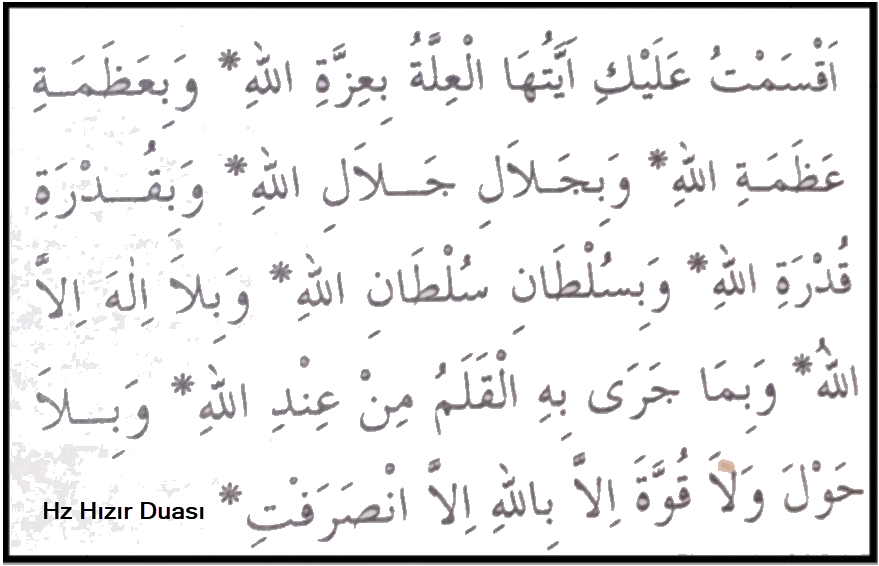 اَقْسَمْتُ عَلَيْكِ اَيَّتُهَا الْعِلَّةُ بِعِزَّةِ اللّٰهِ * وَبِعَظَمَةِ
عَظَمَةِ اللّٰهِ * وَبِجَلاَلِ جَلاَلِ اللّٰهِ * وَبِقُدْرَةِ
قُدْرَةِ اللّٰهِ * وَبِسُلْطَانِ سُلْطَانِ اللّٰهِ * وَبِلاَ اِلٰهَ اِلاَّ
اللّٰهُ * وَبِمَا جَرَى بِهِ الْقَلَمُ مِنْ عِنْدِ اللّٰهِ * وَبِلاَ
حَوْلَ وَلاَ قُوَّةَ اِلاَّ بِاللّٰهِ اِلاَّ انْصَرَفْتِ *
Hz Hızır Duası